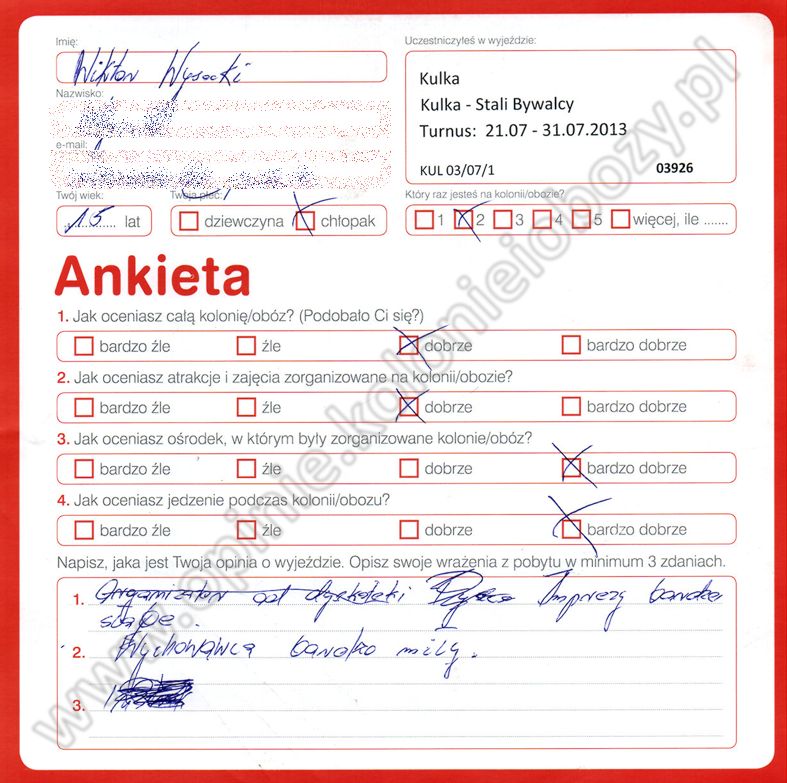 Imię:
Wiktor Wysocki
Nazwisko:
e-mail:
Twój wiek:
15 lat
Twoja płeć:
dziewczyna chłopak
Uczestniczyłeś w wyjeździe:
Kulka
Kulka - Stali Bywalcy
Turnus: 21.07 - 31.07.2013
KUL 03/07/1 03926
Który raz jesteś na kolonii/obozie?
1 2 3 4 5 więcej, ile .......
Ankieta
1. Jak oceniasz całą kolonię/obóz? (Podobało Ci się?)
bardzo źle źle dobrze bardzo dobrze
2. Jak oceniasz atrakcje i zajęcia zorganizowane na kolonii/obozie?
bardzo źle źle dobrze bardzo dobrze
3. Jak oceniasz ośrodek, w którym były zorganizowane kolonie/obóz?
bardzo źle źle dobrze bardzo dobrze
4. Jak oceniasz jedzenie podczas kolonii/obozu?
bardzo źle źle dobrze bardzo dobrze
Napisz, jaka jest Twoja opinia o wyjeździe. Opisz swoje wrażenia z pobytu w minimum 3 zdaniach.
1. Organizator od dyskoteki Imprezy bardzo
słabe.
2. Wychowawca bardzo miły.
3.
www.opinie.kolonieiobozy.pl